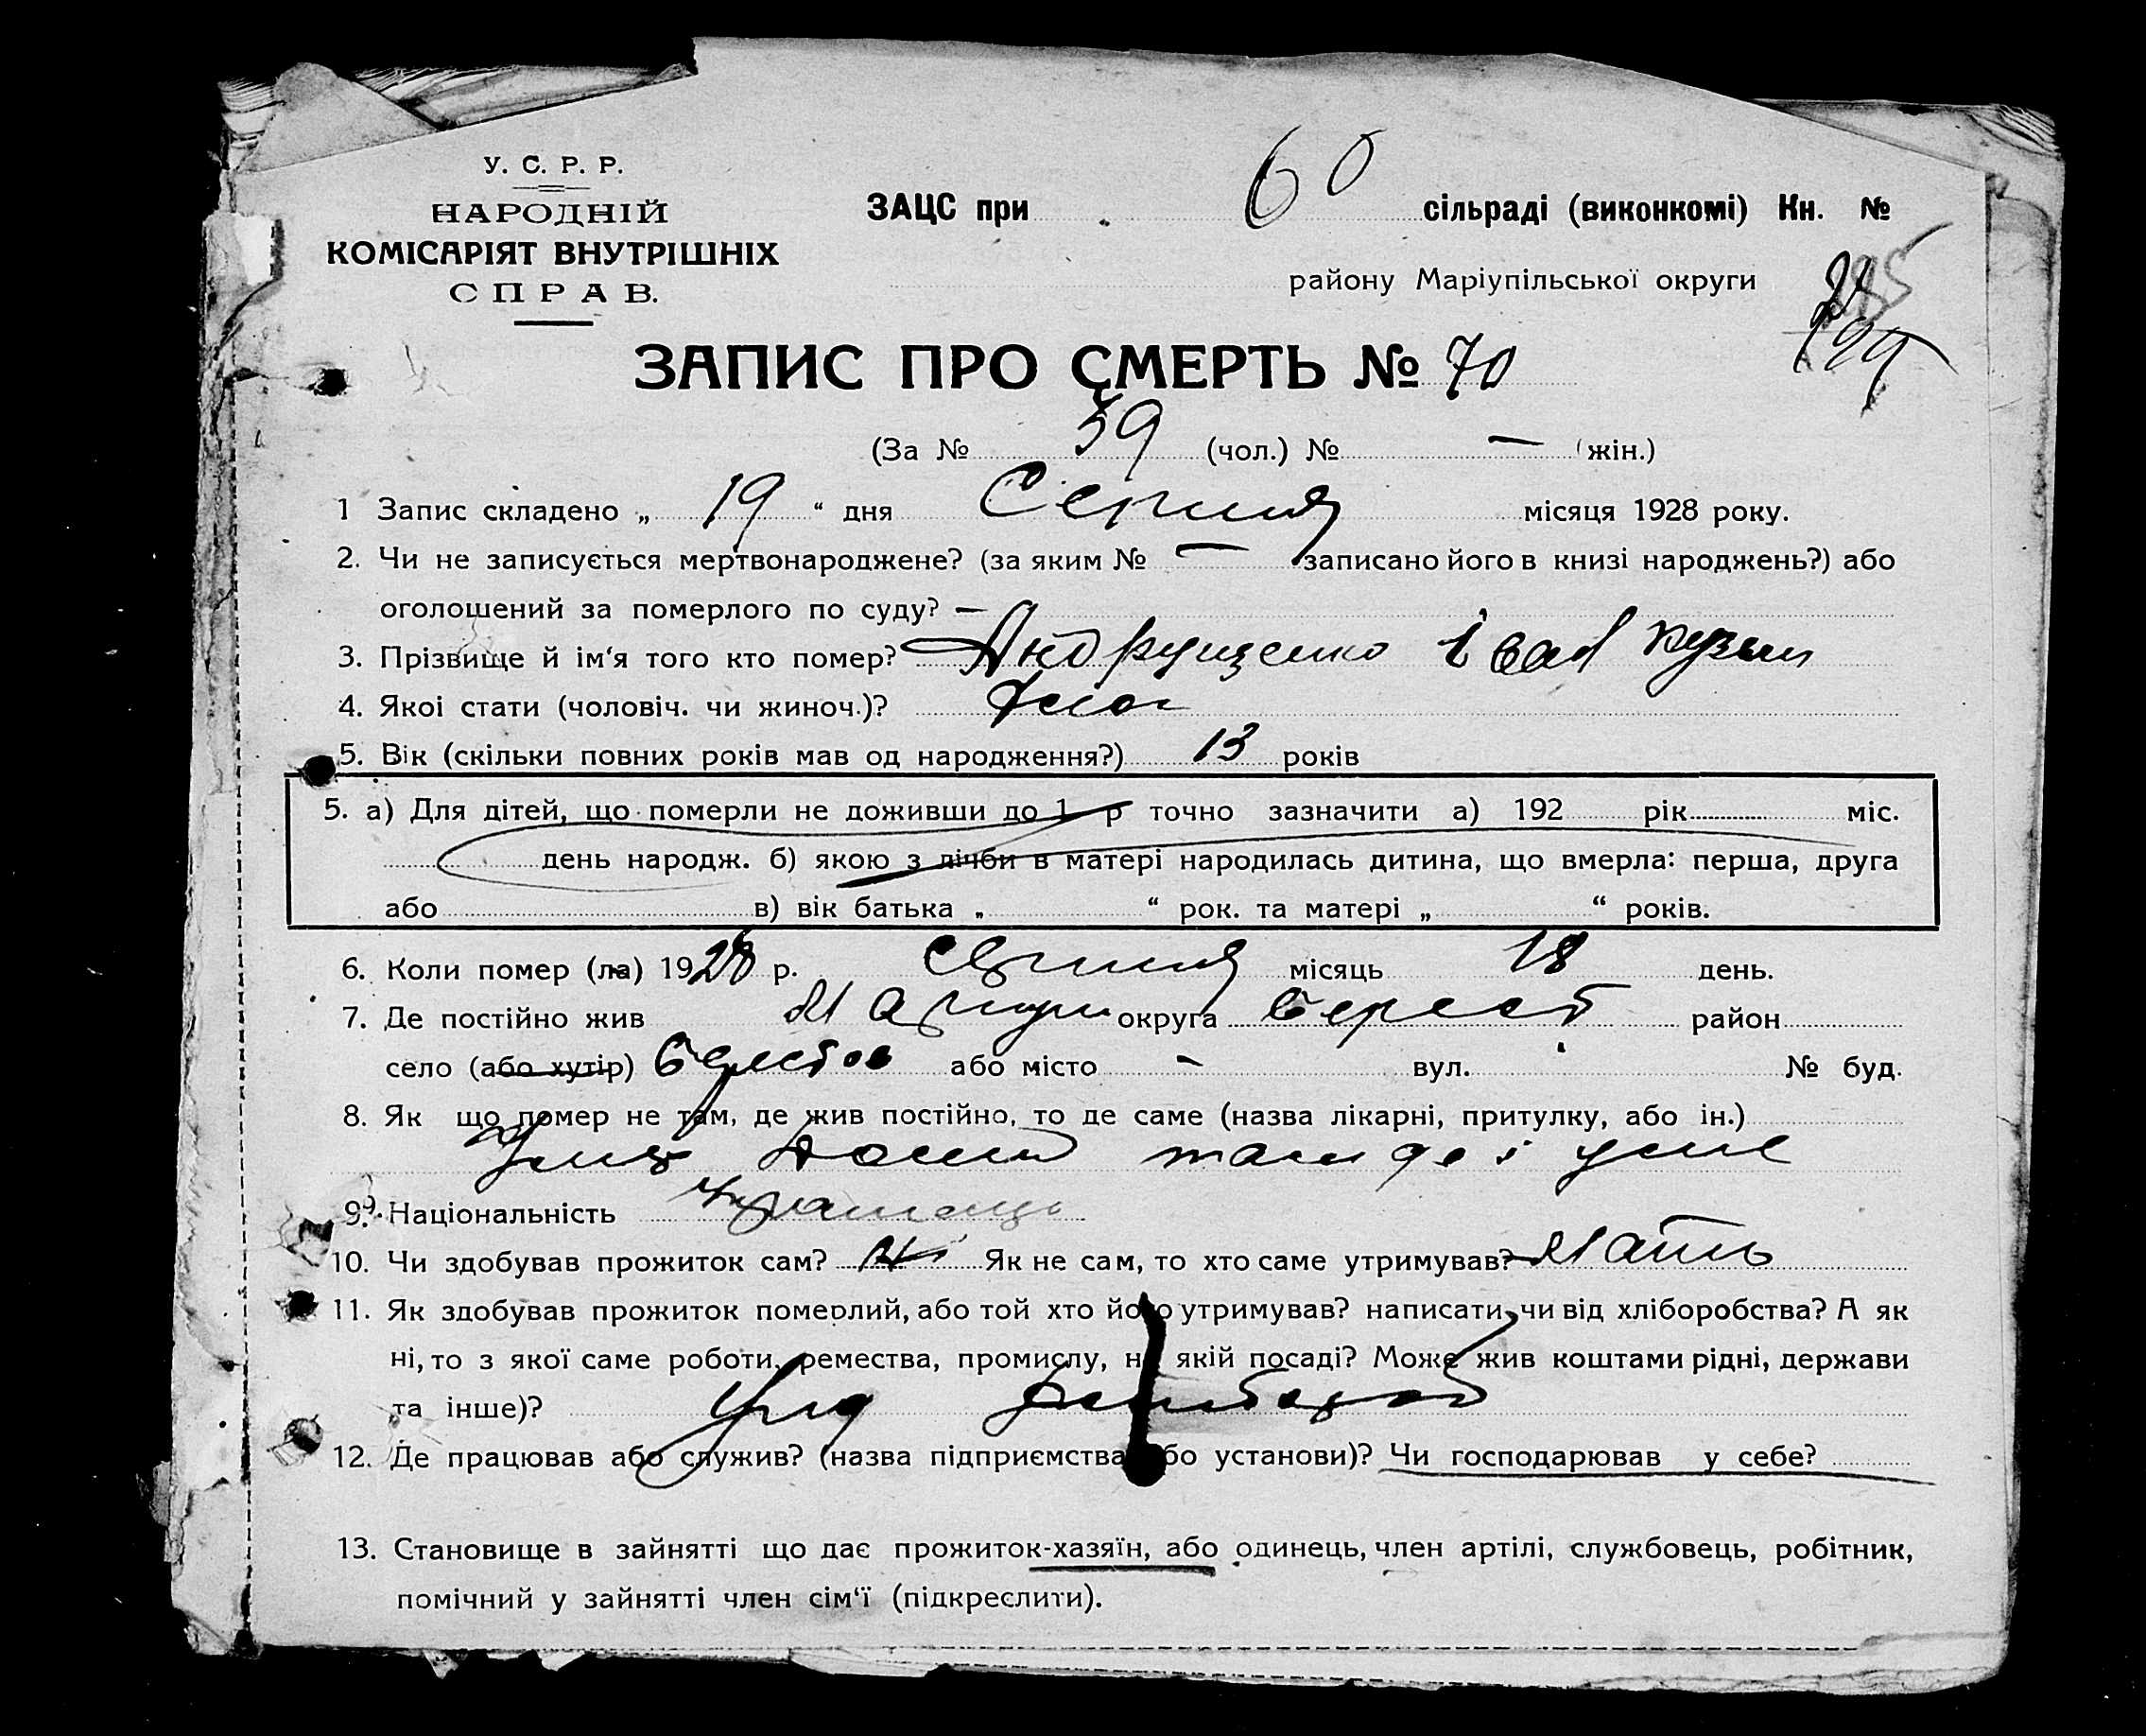 У. С. Р. Р.
НАРОДНІЙ
КОМІСАРІЯТ ВНУТРІШНІХ
СПРАВ.
ЗАЦС при сільраді (виконкомі) Кн. №
району Маріупільської округи
199
ЗАПИС ПРО СМЕРТЬ № 70
(За № 39 (чол.) № — (жін.)
1 Запис складено „ 19 “ дня Серпня місяця 1928 року.
2. Чи не записується мертвонароджене? (за яким № — записано його в книзі народжень?) або
оголошений за померлого по суду? —
3. Прізвище й ім‘я того кто помер? Андрущенко Іван Кузьм
4. Якоі стати (чоловіч. чи жиноч.)?
5. Вік (скільки повних років мав од народження?) 13 років
5. а) Для дітей, що померли не доживши до 1 р точно зазначити а) 192 рік міс.
день народж. б) якою з лічби в матері народилась дитина, що вмерла: перша, друга
або в) вік батька „ “ рок. та матері „ “ років.
6. Коли помер (ла) 1928 р. Серпня місяць 18 день.
7. Де постійно жив Маріуп округа Берест район
село (або хутір) Берестов або місто - вул. № буд.
8. Як що помер не там, де жив постійно, то де саме (назва лікарні, притулку, або ін.)
9. Національність Українець
10. Чи здобував прожиток сам? Ні Як не сам, то хто саме утримував? Мать
11. Як здобував прожиток померлий, або той хто його утримував? написати, чи від хліборобства? А як
ні, то з якої саме роботи, ремества, промислу, на якій посаді? Може жив коштами рідні, держави
та інше)?
12. Де працював або служив? (назва підприємства або установи)? Чи господарював у себе?
13. Становище в зайнятті що дає прожиток-хазяїн, або одинець, член артілі, службовець, робітник,
помічний у зайнятті член сім‘ї (підкреслити).